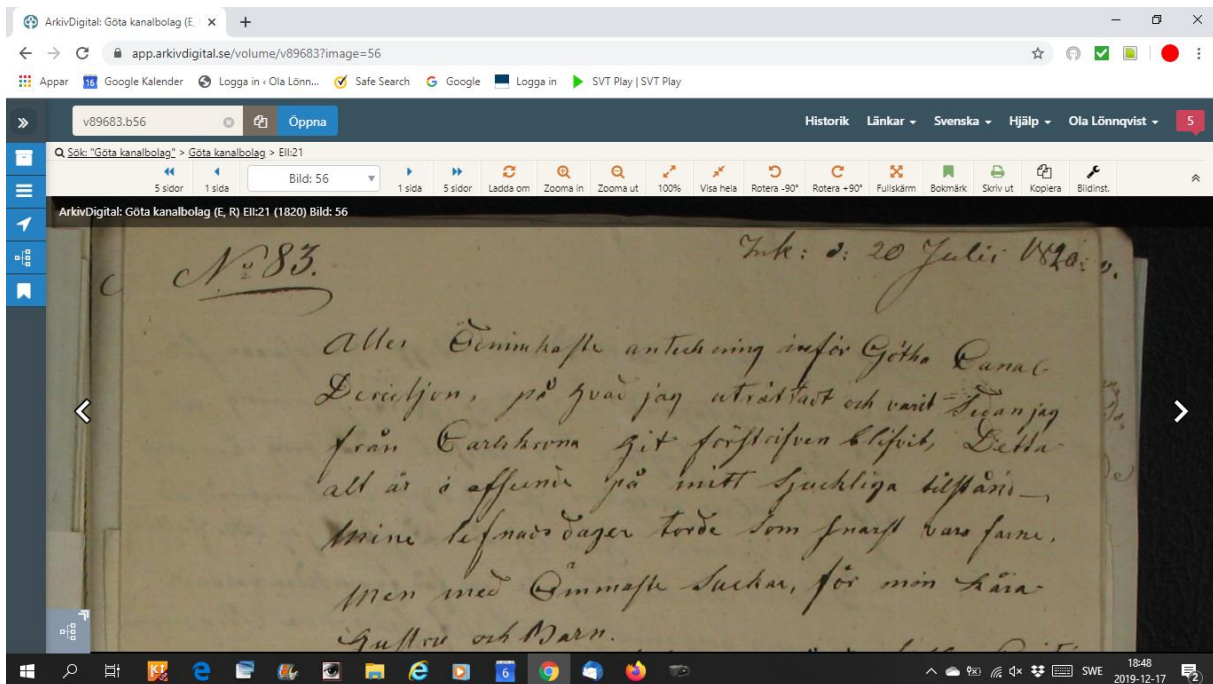 ArkivDigital: Göta kanalbolag (E,
app.arkivdigital.se/volume/v89683?image=56
Appar Google Kalender Logga in ‹ Ola Lönn... Safe Search Google Logga in SVT Play | SVT Play
v89683.b56 Öppna Historik Länkar Svenska Hjälp Ola Lönnqvist 5
Sök: "Göta kanalbolag" > Göta kanalbolag > EII:21
Bild: 56
5 sidor 1 sida 1 sida 5 sidor Ladda om Zooma in Zooma ut 100% Visa hela Rotera -90° Rotera +90° Fullskärm Bokmärk Skriv ut Kopiera Bildinst.
ArkivDigital: Göta kanalbolag (E, R) EII:21 (1820) Bild: 56
No 83.
Ink: d: 20 Julii 1820:
Aller Ödmimkaste anteckning inför Götha Canal
Direcktjon, på hvad jag uträttadt och varit Sedan jag
från Carlskrona hit förskrifven blifvit, Detta
alt är i afseende på mitt Sjuckliga tillstånd
Mine lefnads dagar torde som snarst vara farne,
Men med Ömmaste Suckar, för min kära
Hustru och Barn.
18:48
SWE
2019-12-17